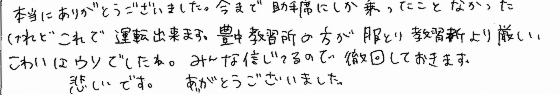 本当にありがとうございました。今まで助手席にしか乗ったことなかった
けれどこれで運転出来ます。豊中教習所の方が服とり教習所より厳しい
こわいはウソでしたね。みんな信じてるので撤回しておきます。
悲しいです。 ありがとうございました。